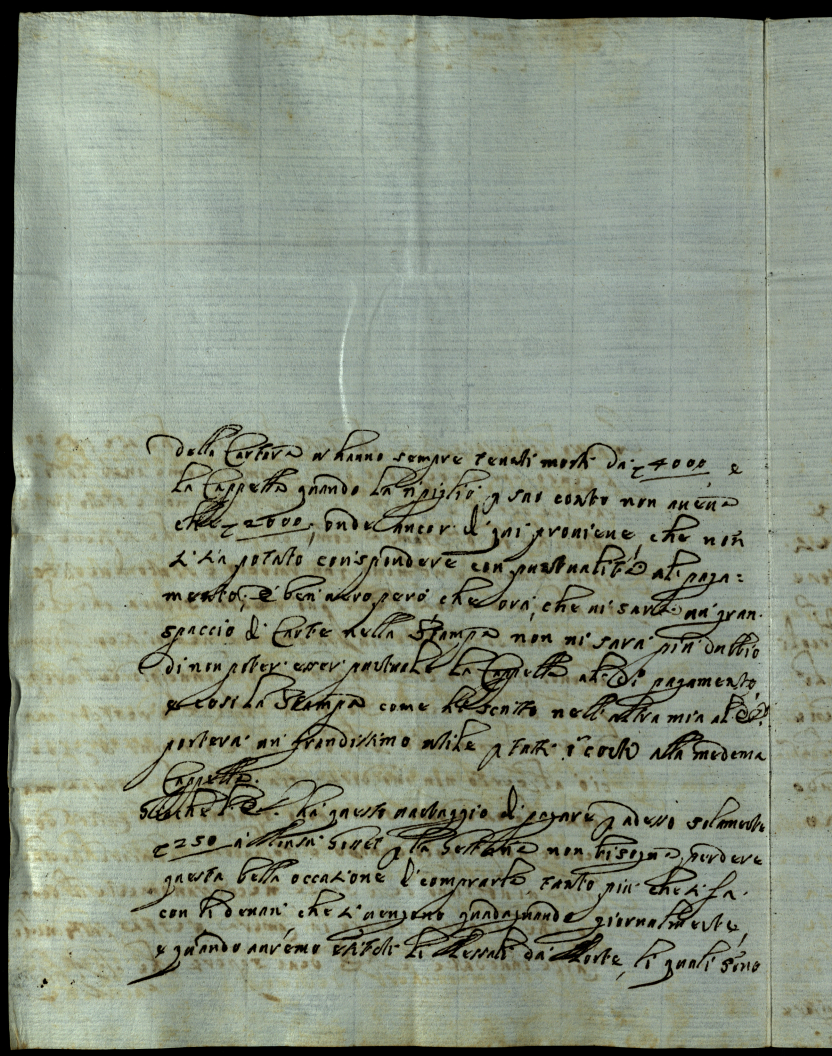 della Cartera vi hanno sempre tenuti morti da ₤ 4000 e
la Cappella quando la ripigliò p suo conto non aueua
che ₤ 2000, onde ancor di qui proviene che non
si sia potuto corrispondere con puntualità al paga=
mento, è ben uero però che ora, che ui sarà un gran
spaccio di Carte nella Stampa non ui sarà più dubbio
di non poter esser puntuale la Cappella al di pagamento,
e così la Stampa come ho scritto nell'altra mia al
porterà un grandissimo utile p tutti i conti alla medema
Cappella.
ha questo uantaggio di pagare p adesso solamente
₤ 250 p la non bisogna perdere
questa bella occasione di comprarle, tanto più che si fa
con li denari che si uengono guadagnando giornalmente,
e quando auremo li Messali da Morte, li quali sono